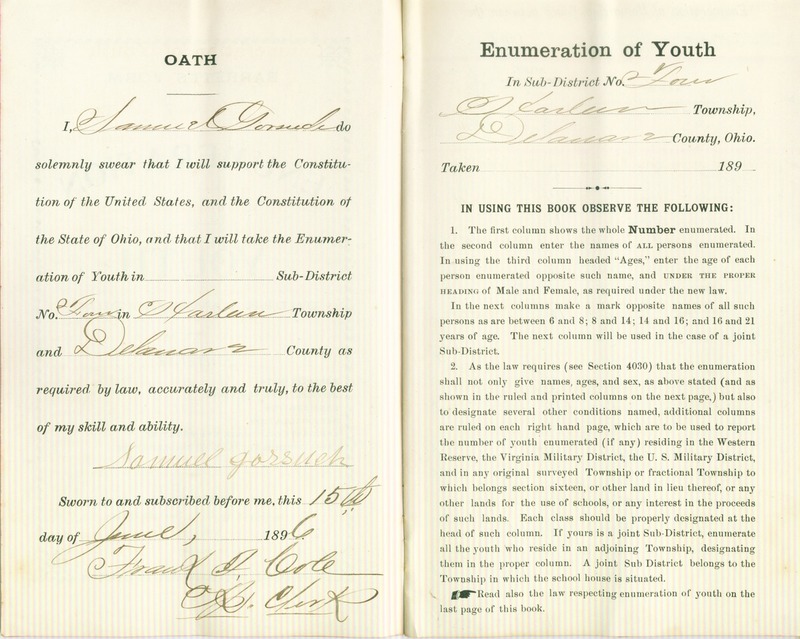 OATH
I, Samuel Gorsuch do
solemnly swear that I will support the Constitu-
tion of the United States, and the Constitution of
the State of Ohio, and that I will take the Enumer-
ation of Youth in Sub-District
No. Four in Harlem Township
and Delaware County as
required by law, accurately and truly, to the best
of my skill and ability.
Samuel gorsuch
Sworn to and subscribed before me, this 15th
day of June, 1896
Frank A. Cole
Clerk
Enumeration of Youth
In Sub-District No. Four
Harlem Township,
Delaware County, Ohio.
Taken 189
IN USING THIS BOOK OBSERVE THE FOLLOWING:
1. The first column shows the whole Number enumerated. In
the second column enter the names of ALL persons enumerated.
In using the third column headed "Ages," enter the age of each
person enumerated opposite such name, and UNDER THE PROPER
HEADING of Male and Female, as required under the new law.
In the next columns make a mark opposite names of all such
persons as are between 6 and 8; 8 and 14; 14 and 16; and 16 and 21
years of age. The next column will be used in the case of a joint
Sub-District.
2. As the law requires (see Section 4030) that the enumeration
shall not only give names, ages, and sex, as above stated (and as
shown in the ruled and printed columns on the next page,) but also
to designate several other conditions named, additional columns
are ruled on each right hand page, which are to be used to report
the number of youth enumerated (if any) residing in the Western
Reserve, the Virginia Military District, the U. S. Military District,
and in any original surveyed Township or fractional Township to
which belongs section sixteen, or other land in lieu thereof, or any
other lands for the use of schools, or any interest in the proceeds
of such lands. Each class should be properly designated at the
head of such column. If yours is a joint Sub-District, enumerate
all the youth who reside in an adjoining Township, designating
them in the proper column. A joint Sub District belongs to the
Township in which the school house is situated.
Read also the law respecting enumeration of youth on the
last page of this book.